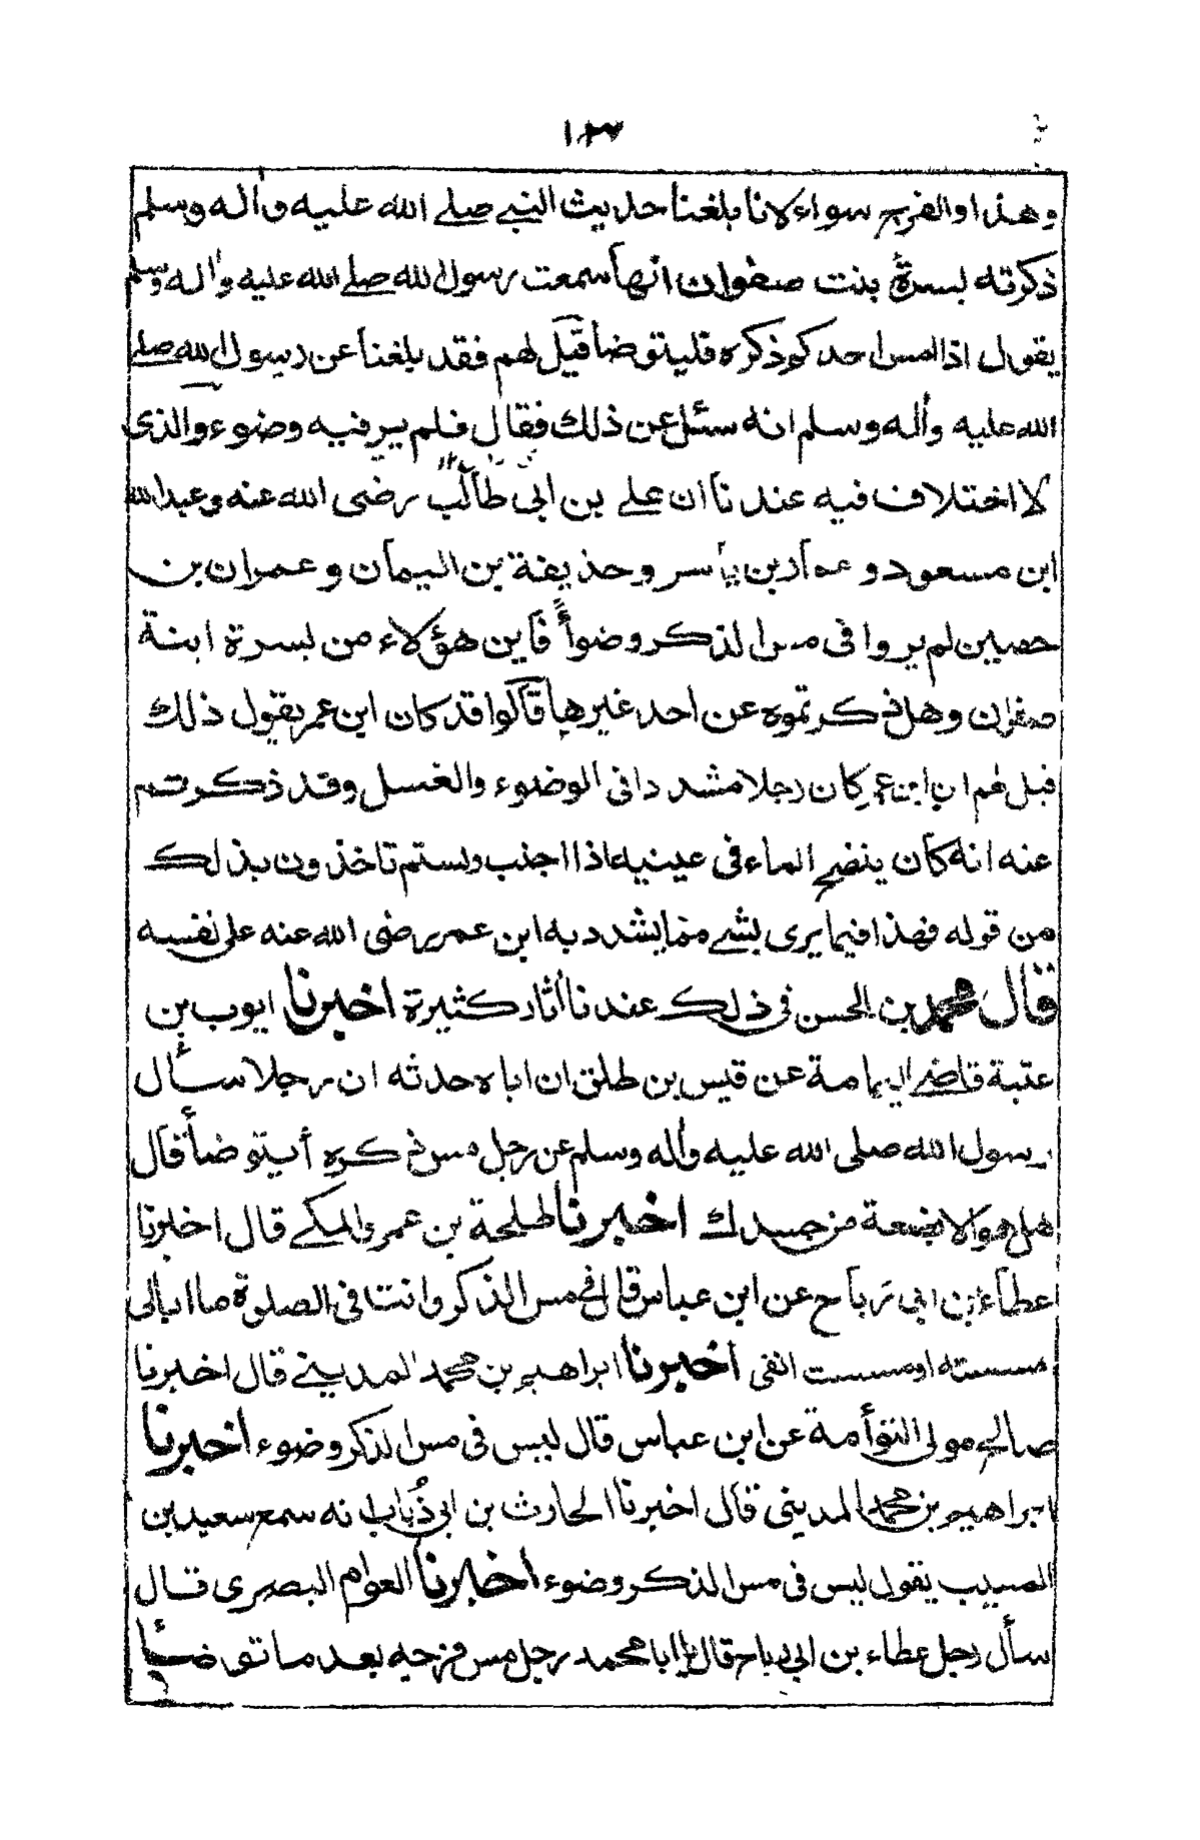 ١٠٣
وهذا والفرج سواء لانا بلغنا حديث النبي صلى الله عليه واله وسلم
ذكرته لبسرة بنت صفوان انها سمعت رسول الله صلى الله عليه واله وسلم
يقول اذا مس احدكم ذكره فليتوضأ قيل لهم فقد بلغنا عن رسول الله صلى
الله عليه واله وسلم انه سئل عن ذلك فقال فلم ير فيه وضوء والذى
لا اختلاف فيه عندنا ان على بن ابى طالب رضى الله عنه وعبدالله
ابن مسعود و عمار بن ياسر وحذيفة بن اليمان و عمران بن
حصين لم يروا فى مس الذكر وضوأ فاين هؤلاء من بسرة ابنة
صفوان وهل ذكرتموه عن احد غيرها قالوا قد كان ابن عمر يقول ذلك
قيل لهم ان ابن عمر كان رجلا مشددا فى الوضوء والغسل وقد ذكرتم
عنه انه كان ينضح الماء فى عينيه اذا اجنب ولستم تاخذون بذلك
من قوله فهذا فيما يرى بشئ مما يشدد به ابن عمر رضى الله عنه على نفسه
قال محمد بن الحسن فى ذلك عندنا أثار كثيرة اخبرنا ايوب بن
عتبة قاضى اليمامة عن قيس بن طلق ان اباه حدثه ان رجلا سأل
رسول الله صلى الله عليه واله وسلم عن رجل مس ذكره أيتوضأ قال
هل هو الا بضعة من جسدك اخبرنا طلحة بن عمرو المكى قال اخبرنا
عطاء بن ابى رباح عن ابن عباس قال فى مس الذكر وانت فى الصلوة ما ابالى
مسسته او مسست انفى اخبرنا ابراهيم بن محمد المدينى قال اخبرنا
صالح مولى التوأمة عن ابن عباس قال ليس فى مس الذكر وضوء اخبرنا
ابراهيم بن محمد المدينى قال اخبرنا الحارث بن ابى ذُباب انه سمع سعيد بن
المسيب يقول ليس فى مس الذكر وضوء اخبرنا العوام البصرى قال
سأل رجل عطاء بن ابى رباح قال يا ابا محمد رجل مس فرجه بعد ما توضأ